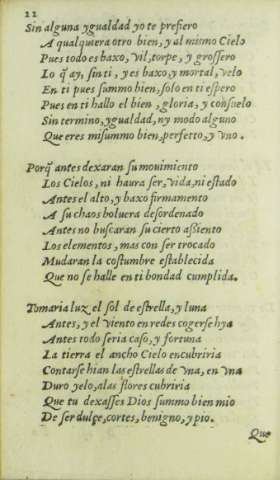 22
Sin alguna ygualdad yo te prefiero
A qualquiera otro bien, y al mismo Cielo
Pues todo es baxo, vil, torpe, y grossero
Lo q̃ ay, sin ti, y es baxo, y mortal, velo
En ti pues summo bien, solo en ti espero
Pues en ti hallo el bien, gloria, y consuelo
Sin termino, ygualdad, ny modo alguno
Que eres mi summo bien, perfetto, y vno.
Porq̃ antes dexaran su mouimiento
Los Cielos, ni haura ser, vida, ni estado
Antes el alto, y baxo firmamento
A su chaos boluera desordenado
Antes no buscaran su cierto assiento
Los elementos, mas con ser trocado
Mudaran la costumbre establecida
Que no se halle en ti bondad cumplida.
Tomaria luz el sol de estrella, y luna
Antes, y el viento en redes cogerse hya
Antes todo seria caso, y fortuna
La tierra el ancho Cielo encubriria
Contarse hian las estrellas de vna, en vna
Duro yelo, a las flores cubriria
Que tu dexasses Dios summo bien mio
De ser dulçe, cortes, benigno, y pio.
Que